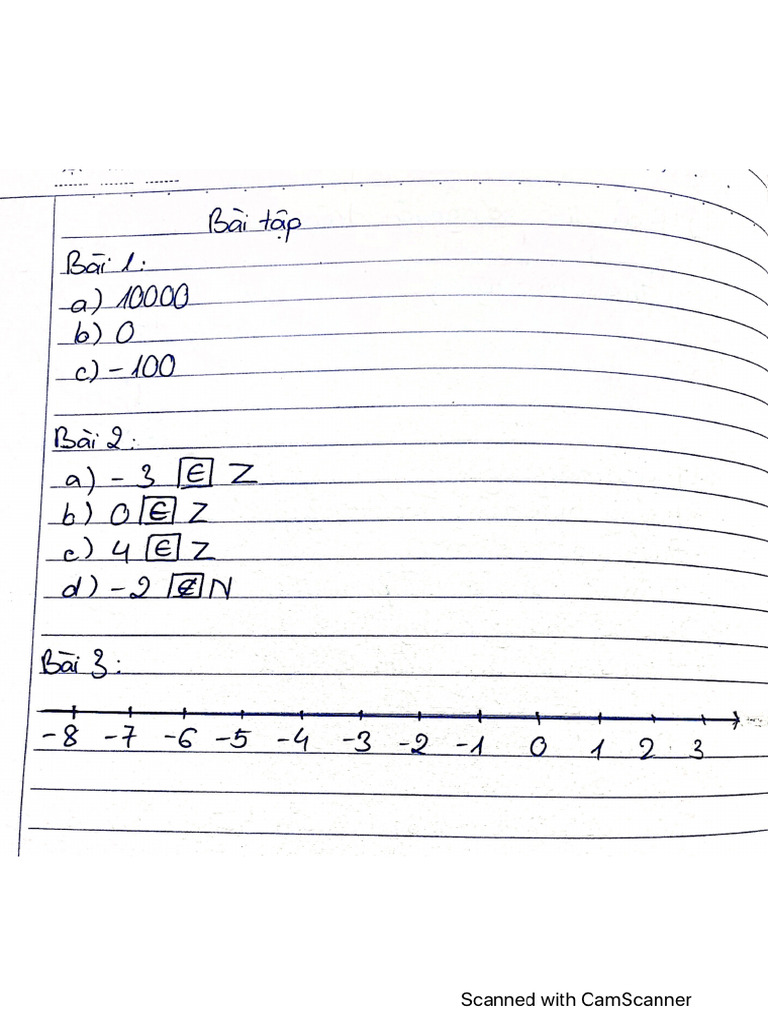 Bài tập
Bài 1:
a) 10000
b) 0
c) - 100
Bài 2:
a) - 3 ∈ Z
b) 0 ∈ Z
c) 4 ∈ Z
d) - 2 ∉ N
Bài 3:
-8 -7 -6 -5 -4 -3 -2 -1 0 1 2 3
Scanned with CamScanner